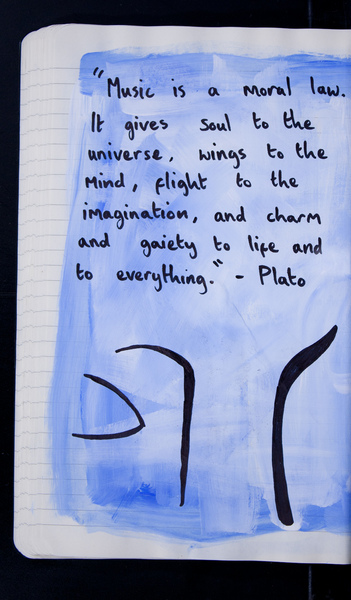 "Music is a moral law.
It gives soul to the
universe, wings to the
mind, flight to the
imagination, and charm
and gaiety to life and
to everything." - Plato